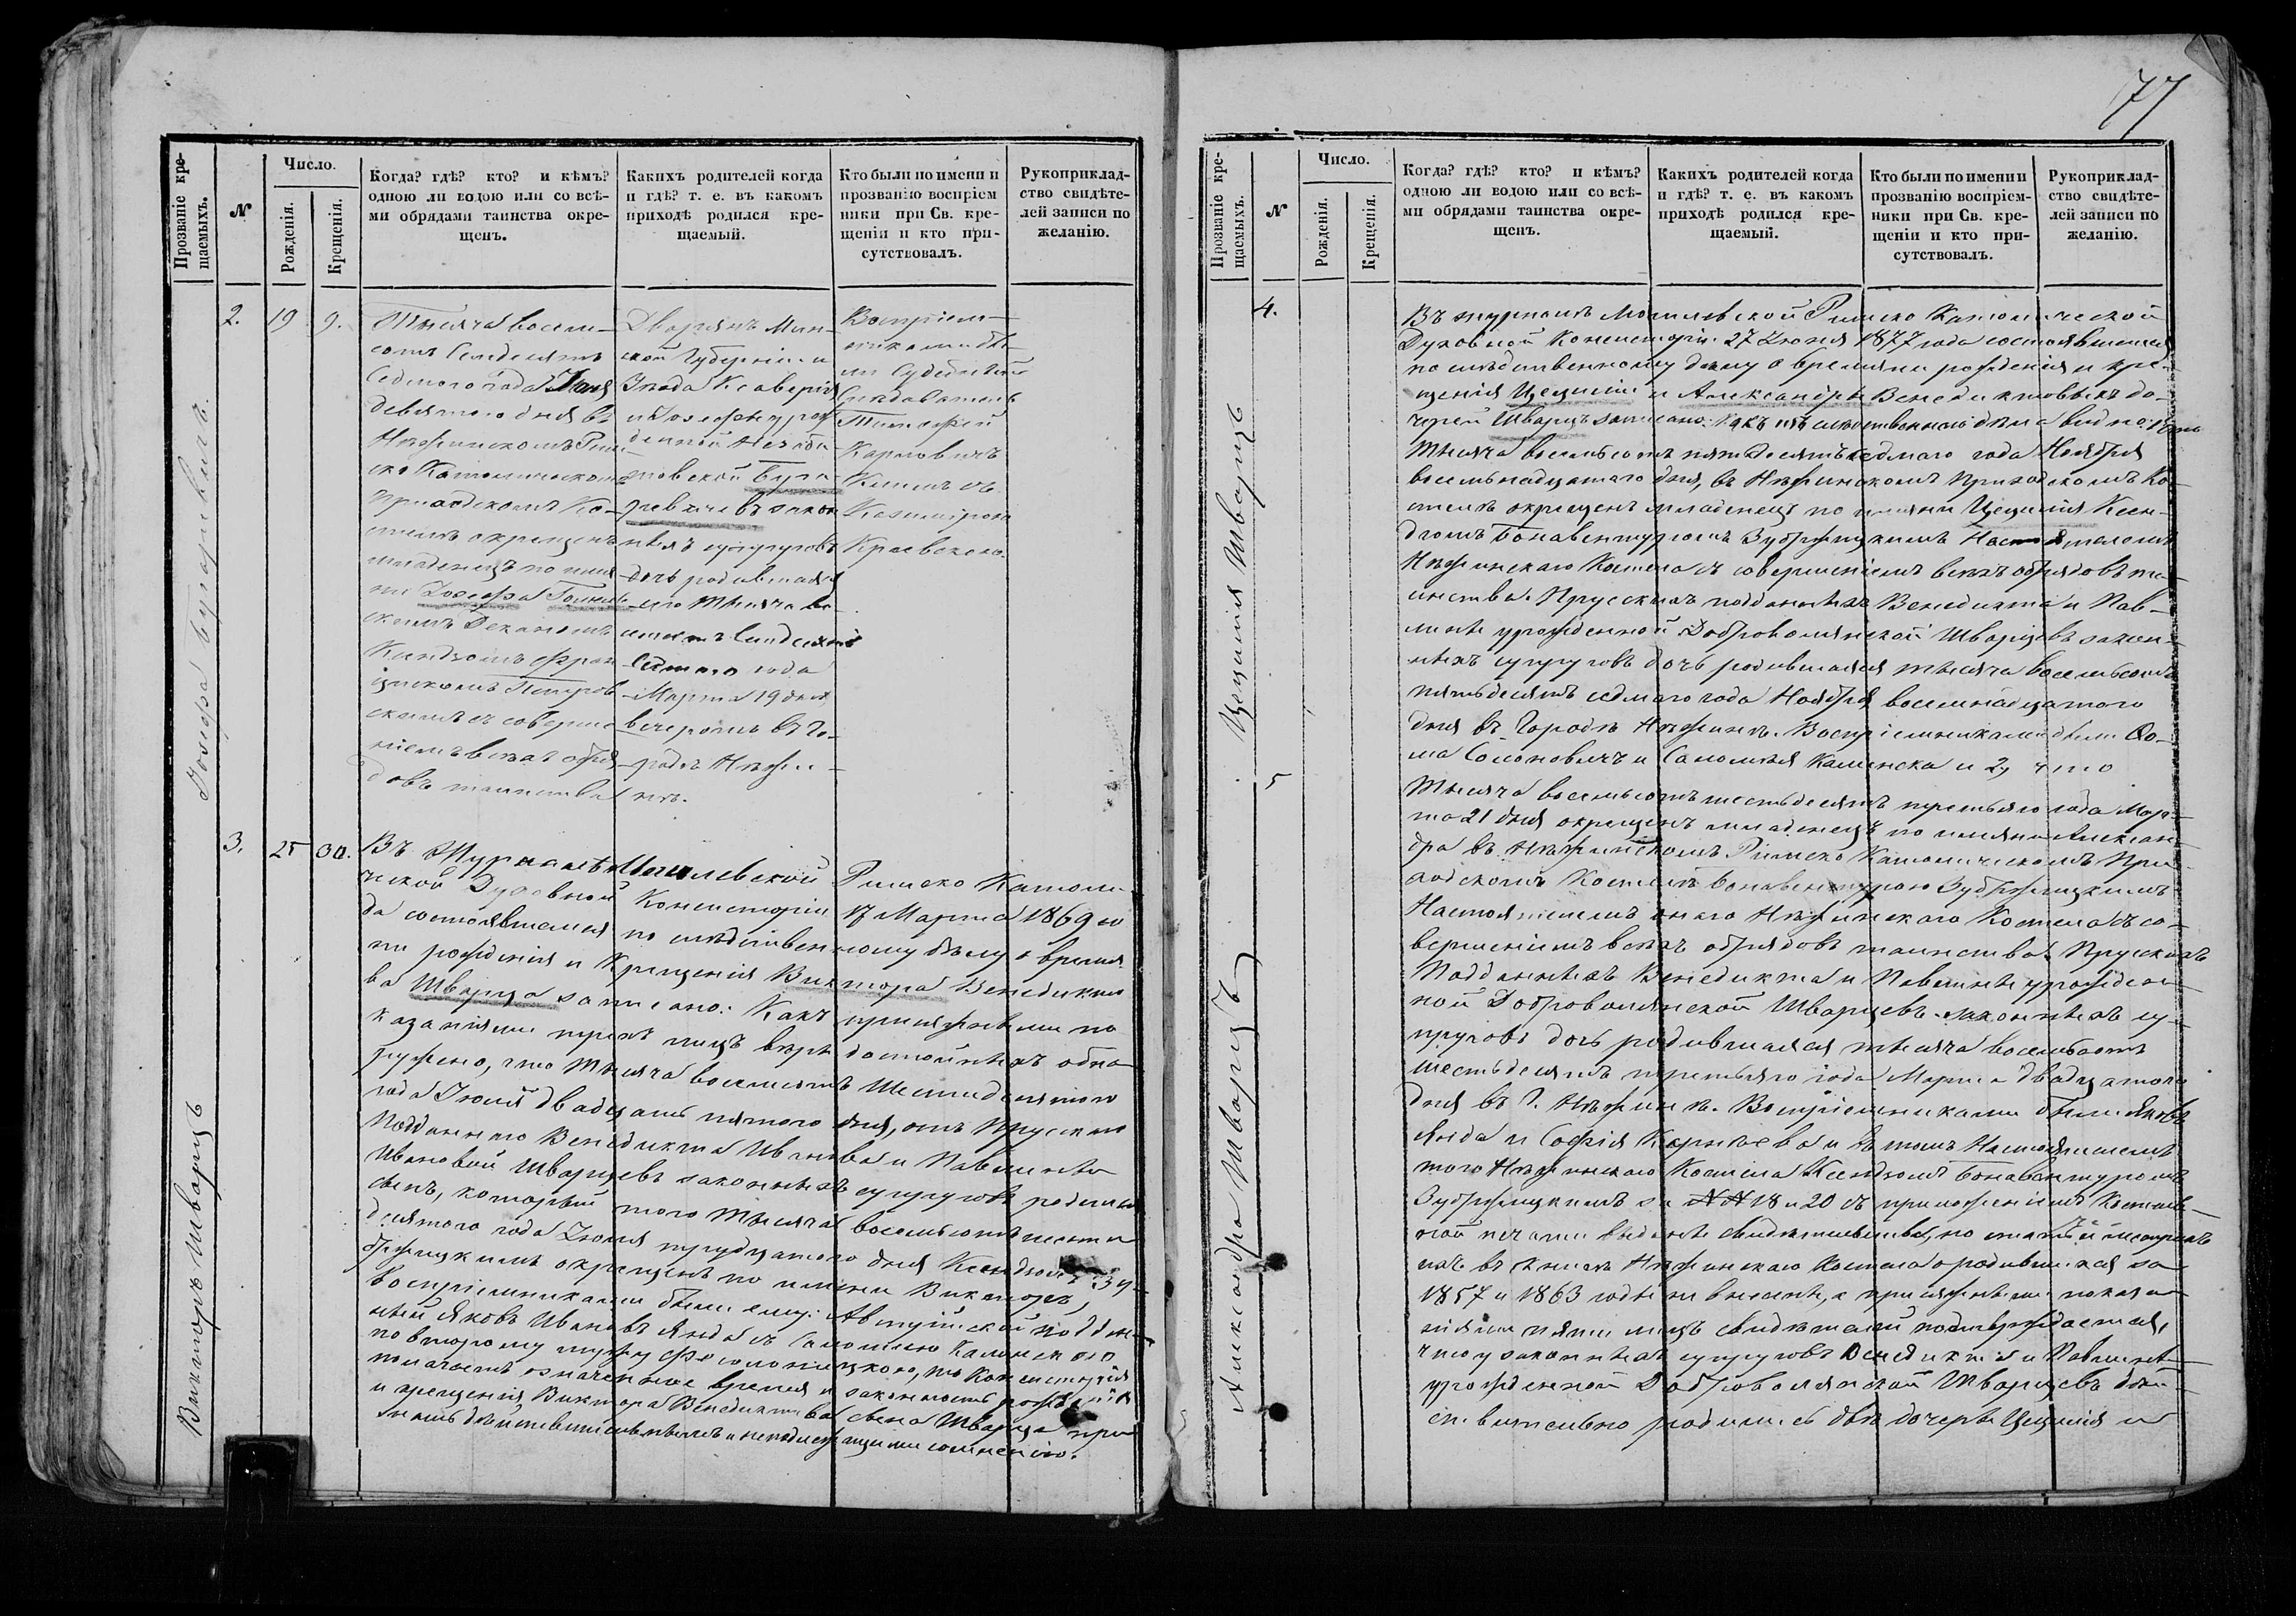 77
Прозваніе кре-
щаемыхъ.
№
Число.
Рожденія.
Крещенія.
Когда? гдѣ? кто? и кѣмъ?
одною ли водою или со всѣ-
ми обрядами таинства окре-
щенъ.
Какихъ родителей когда
и гдѣ? т. е. въ какомъ
приходѣ родился кре-
щаемый.
Кто были по имени и
прозванію воспріем
ники при Св. кре-
щеніи и кто при-
сутствовалъ.
Рукоприклад-
ство свидѣте-
лей записи по
желанію.
2.
19
9.
Тысяча восем-
сотъ Семдесятъ
Седмого года
девятого дня въ
Нѣжинскомъ Рим-
ско Католическомъ
приходскомъ Ко-
стелѣ окрещенъ
младенецъ по име-
ни Іозефа
скимъ Деканомъ
Ксендзомъ Фран
цискомъ Петров
скимъ съ соверше
ніемъ всѣхъ обря-
довъ таинства
Дворянъ Мин-
ской Губерніи и
Уѣзда Ксаверія
и Іозефы урож
денной
новской
въ закон
ныхъ супруговъ
дочь родившаяся
сего тысяча во
семсотъ Семдесятъ
Седмого года
Марта 19 дня
вечеромъ въ Го-
родѣ Нѣжи-
нѣ.
Воспріем-
никами бы-
ли Судебный
Слѣдователь
Тимофей
Карловичъ
съ
Казимірою
Краевскою.
3.
25
30.
Викторъ Шварцъ
Въ Журналѣ Могилевской Римско Католи-
ческой Духовной Консисторіи 17 Марта 1869 го
да состоявшемся по слѣдственному дѣлу о време
ни рожденія и Крещенія Виктора Венедикто
ва Шварца записано: Какъ присяжными по
казаніями трехъ лицъ вѣры достойныхъ обна
ружено, что тысяча восемсотъ Шестидесятого
года Іюня двадцать пятого дня, отъ Прускаго
Подданнаго Венедикта Иванова и Павлины
Ивановой Шварцевъ законныхъ супруговъ родился
сынъ, который того тысяча восемьсотъ шести
десятого года Іюня тридцатого дня Ксендзомъ Зу-
бржицкимъ окрещенъ по имени Викторъ,
Воспріемниками были ему: Австрійской поддан-
ный Яковъ Ивановъ Янда съ Саломеею Калинскою
по второму мужу то Консисторія
полагаетъ означенное время и законность рожденія
и крещенія Виктора Венедиктова сына Шварца при
знать дѣйствительнымъ и неподлежащимъ сомнѣнію.
Прозваніе кре-
щаемыхъ.
№
Число.
Рожденія.
Крещенія.
Когда? гдѣ? кто? и кѣмъ?
одною ли водою или со всѣ-
ми обрядами таинства окре-
щенъ.
Какихъ родителей когда
и гдѣ? т. е. въ какомъ
приходѣ родился кре-
щаемый.
Кто были по имени и
прозванію воспріем-
ники при Св. кре-
щеніи и кто при-
сутствовалъ.
Рукоприклад-
ство свидѣте-
лей записи по
желанію.
4.
Цецилія Шварцъ
5
Александра Шварцъ
Въ журналѣ Могилевской Римско Католической
Духовной Консисторіи 27 Іюня 1877 года состоявшемся
по слѣдственному дѣлу о времяни рожденія и кре-
щенія Цециліи и Александры Венедиктовыхъ до-
черей Шварцъ записано: Какъ изъ слѣдственнаго дѣла видно: что
тысяча восемьсотъ пятьдесятъ седмаго года Ноября
восемьнадцатаго дня, въ Нѣжинскомъ Приходскомъ Ко-
стелѣ окрещенъ младенецъ по имяни Цецилія Ксен-
дзомъ Бонавентурою Зубржицкимъ Настоятелемъ
Нѣжинскаго Костела съ совершеніемъ всѣхъ обрядовъ та-
инства. Прусскихъ подданныхъ Венедикта и Пав-
лины урожденной Добровольянской Шварцевъ закон-
ныхъ супруговъ дочь родившаяся тысяча восемьсотъ
пятьдесятъ седмаго года Ноября восемнадцатого
дня въ Городѣ Нѣжинѣ. Воспріемниками были Фо-
ма Соломовичъ и Саломея Калинска и 2, что
тысяча восемьсотъ шестьдесятъ третьяго года Мар-
та 21 дня окрещенъ младенецъ по имяни Алексан-
дра въ Нѣжинскомъ Римско Католическомъ При-
ходскомъ Костелѣ Бонавентурою Зубржицкимъ
Настоятелемъ онаго Нѣжинскаго Костела съ со-
вершеніемъ всѣхъ обрядовъ таинства. Прускихъ
Подданныхъ Венедикта и Павлины урожден-
ной Добровольянской Шварцевъ законныхъ су-
пруговъ дочь родившаяся тысяча восемьсотъ
шестьдесятъ третьяго года Марта двадцатого
дня въ Г. Нѣжинѣ. Воспріемниками были Яковъ
Янда и Софія и въ томъ Настоятелемъ
того Нѣжинскаго Костела Ксендзомъ Бонавентурою
Зубржицкимъ за №№ 18 и 20 съ приложеніемъ Костель-
ной печати выданы свидѣтельства, но статьи метрикъ
ихъ въ книги Нѣжинскаго Костела о родившихся за
1857 и 1863 годы не внесены, а присяжными показа
ніями пяти лицъ свидѣтелей подтверждается,
что у законныхъ супруговъ Венедикта и Павлины
урожденной Добровольянской Шварцевъ дѣй-
ствительно родились двѣ дочери Цецилія и